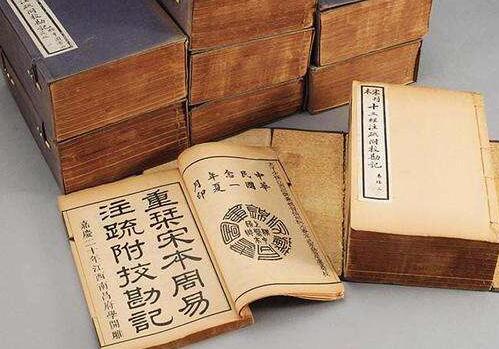 中華民國念一年夏月印
重栞宋本周易
注疏附挍勘記
嘉慶二十年江西南昌府學開雕
十三經注疏附挍勘記
注疏附挍勘記